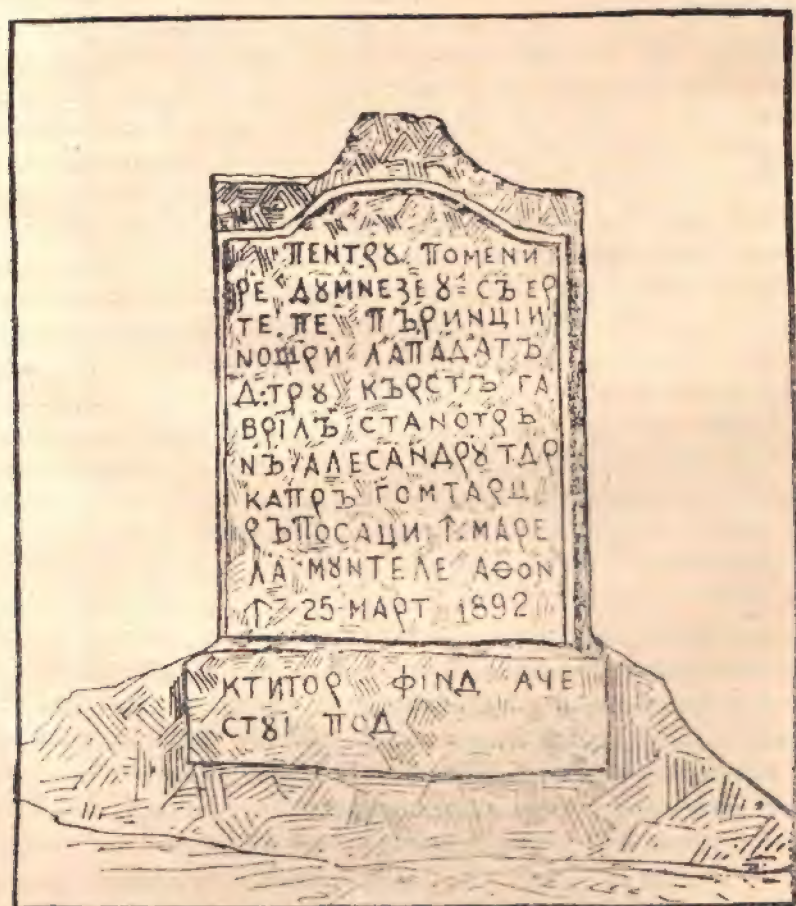 ПЕНТРȢ ПОМЕНИ
РЕ ДȢМНЕЗЕȢ = СЪ ЕР
ТЕ ПЕ ПЪРИНЦІИ
НОЩРИ ЛАПАДАТЪ
Д:ТРȢ КЪРСТЪ ГА
ВРІЛЪ СТАНОТРЪ
НЪ АЛЕСАНДРȢ ТДР
КАПРЪ ГОМТАРЦ
РЪПОСАЦИ ꙟ МАРЕ
ЛА МȢНТЕЛЕ АѲОН
ꙟ 25-МАРТ 1892
КТИТОР ФІНД АЧЕ
СТȢІ ПОД